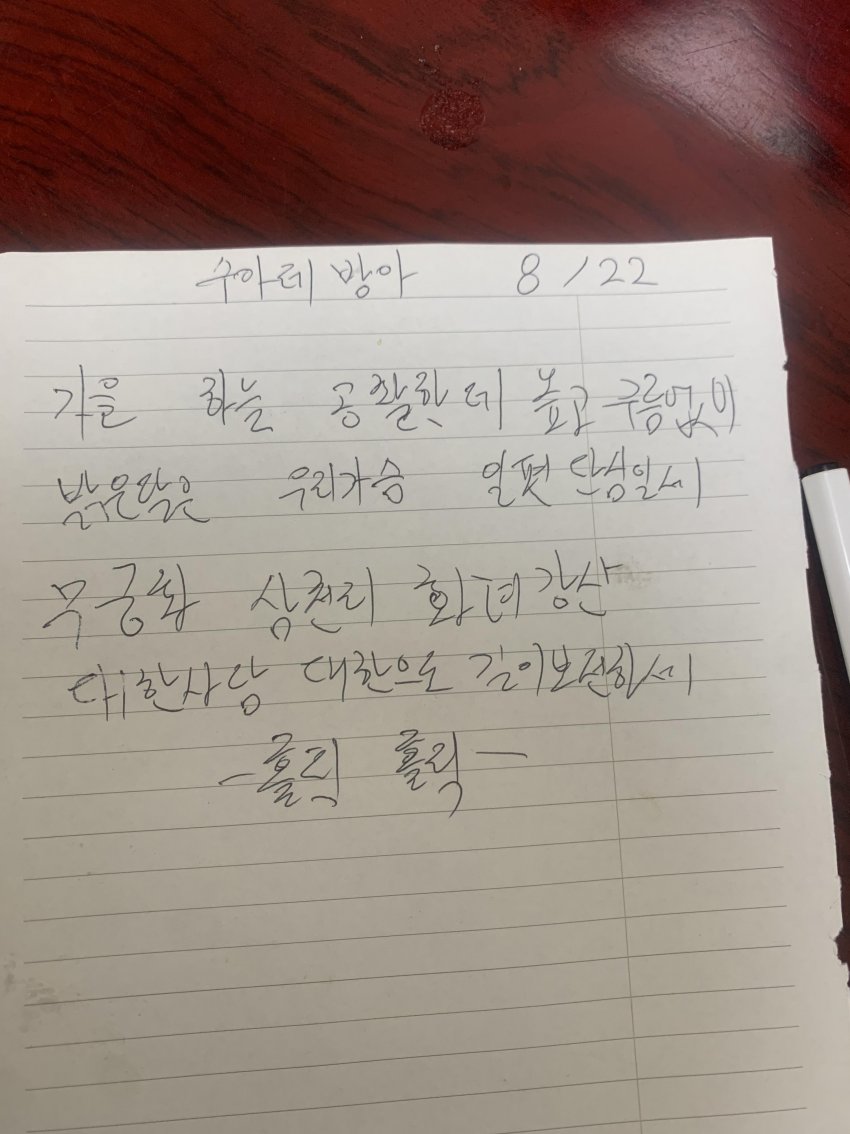 수아레 방아 8/22
가을 하늘 공활한데 높고 구름없이
밝은달은 우리가슴 일편단심일세
무궁화 삼천리 화려강산
대한사람 대한으로 길이보전하세
-훌리 훌릭-